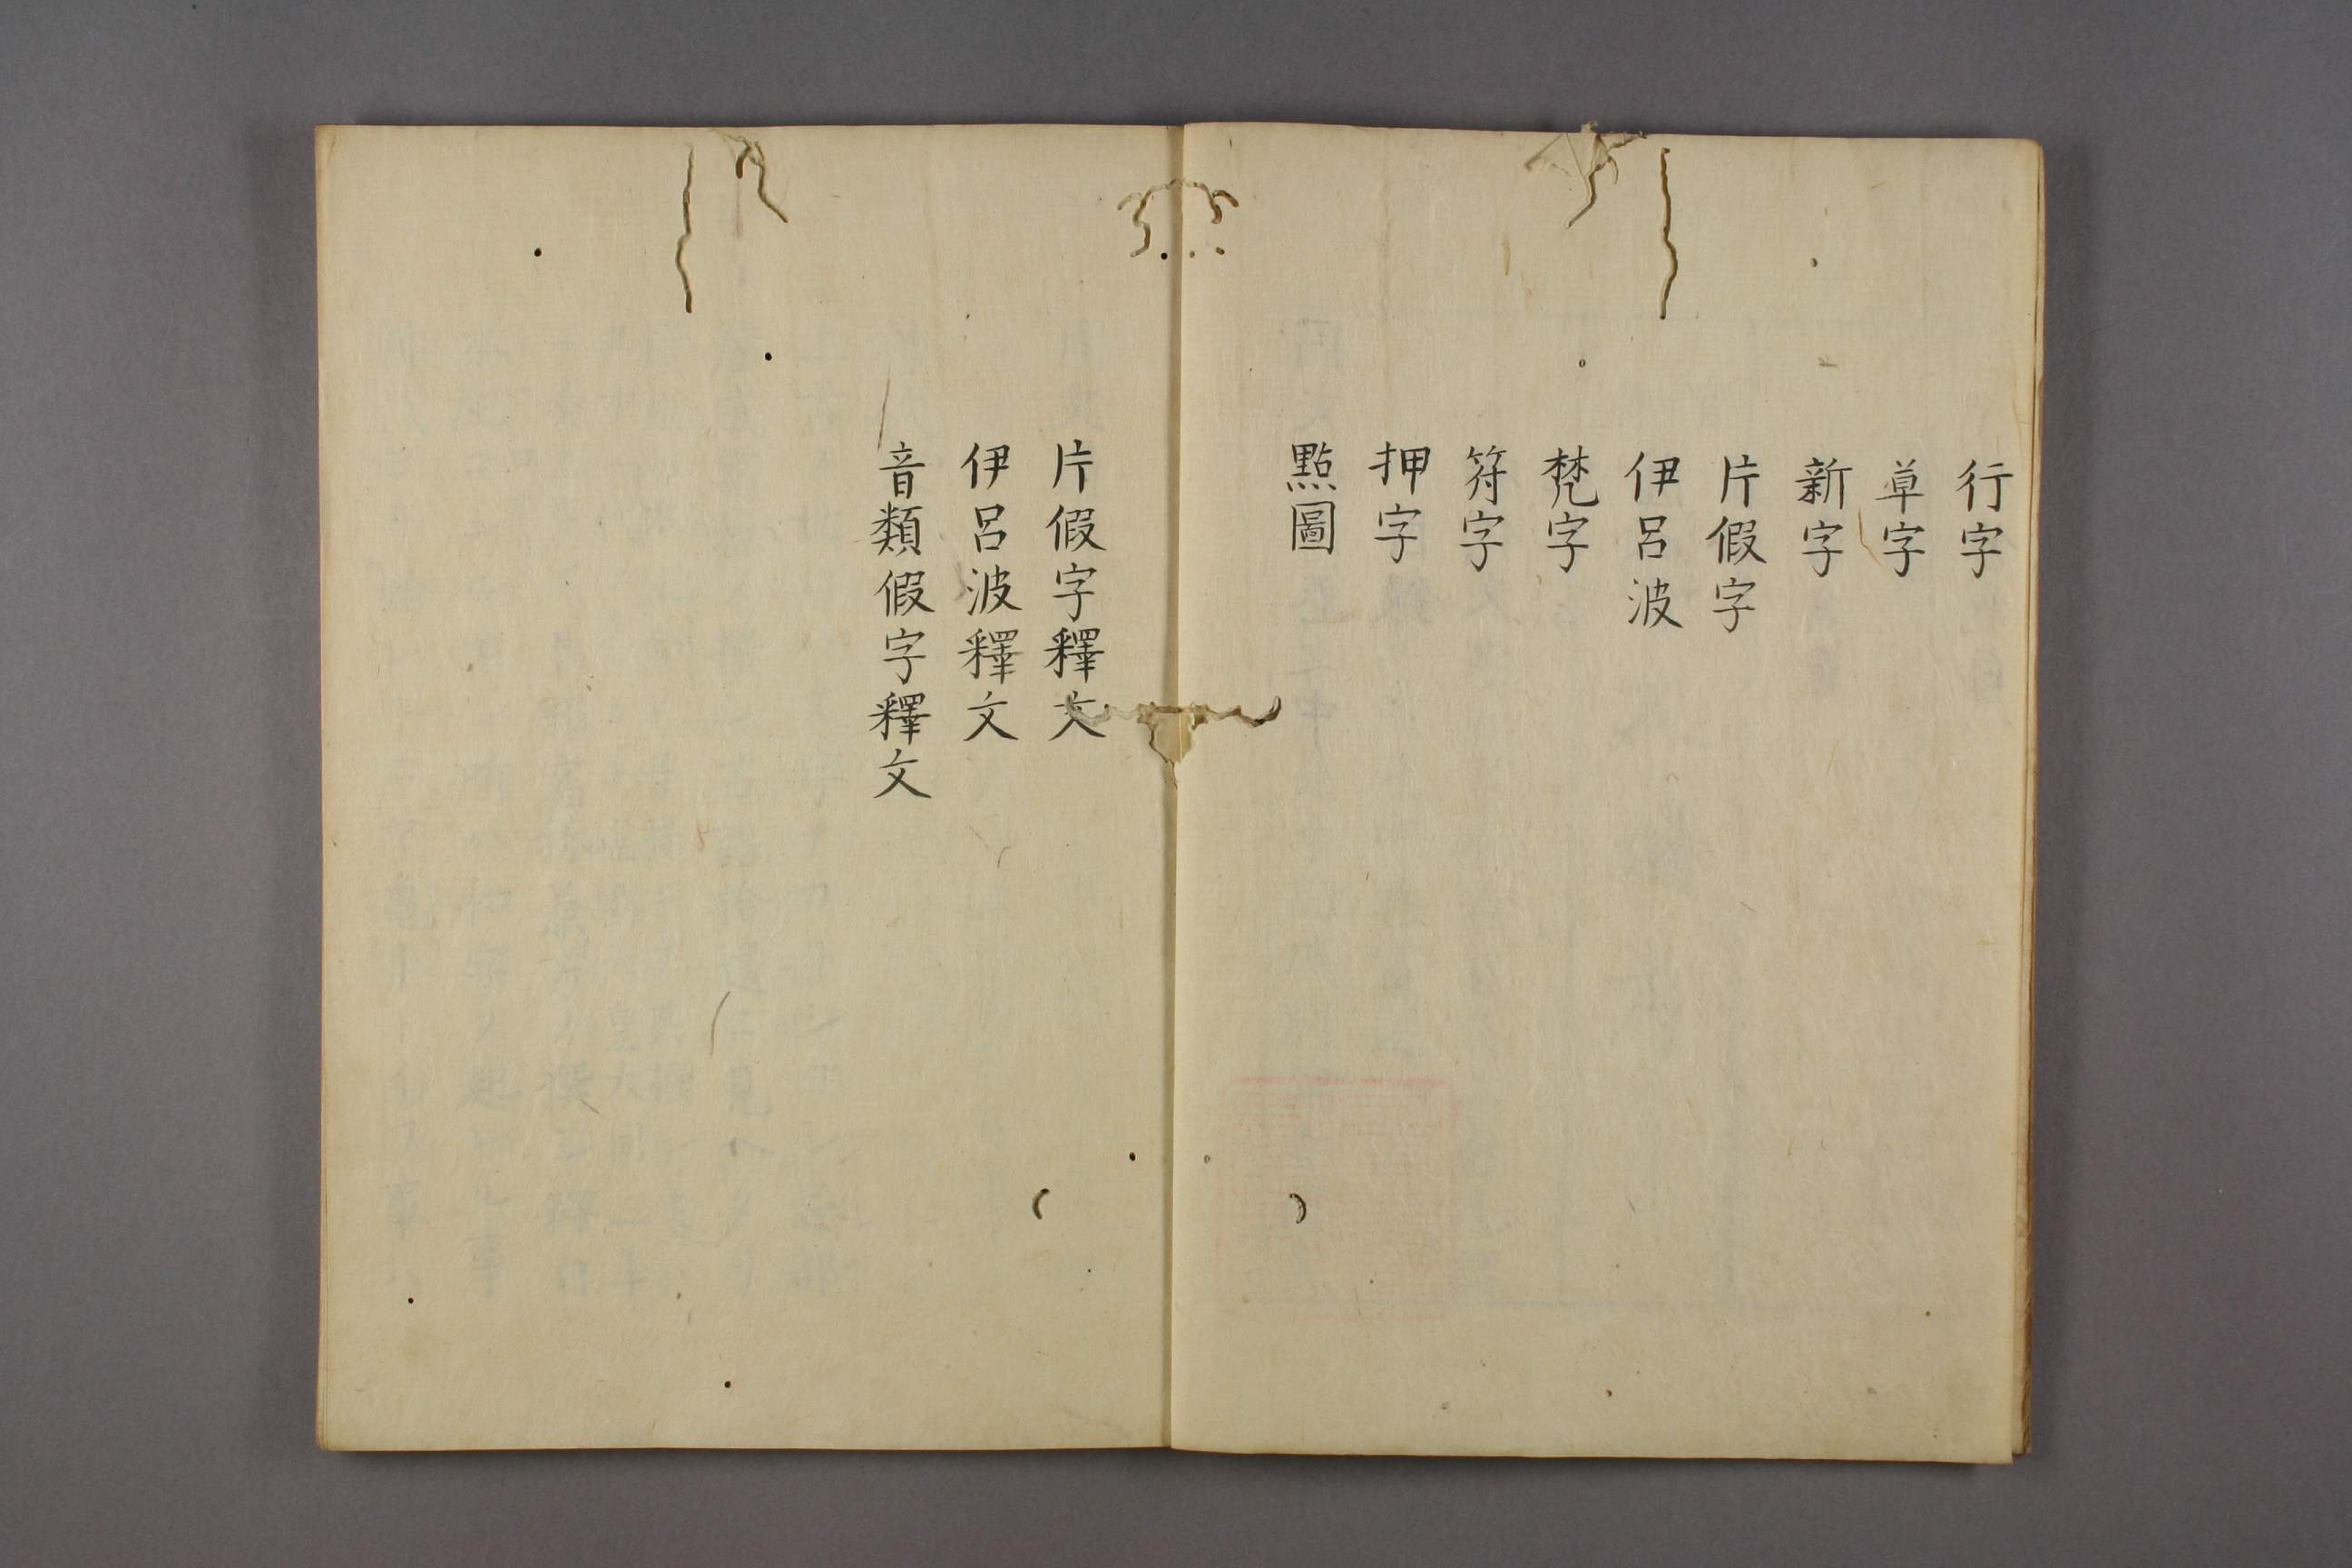 行字
草字
新字
片假字
伊呂波
梵字
符字
押字
點圖
片假字釋文
伊呂波釋文
音類假字釋文